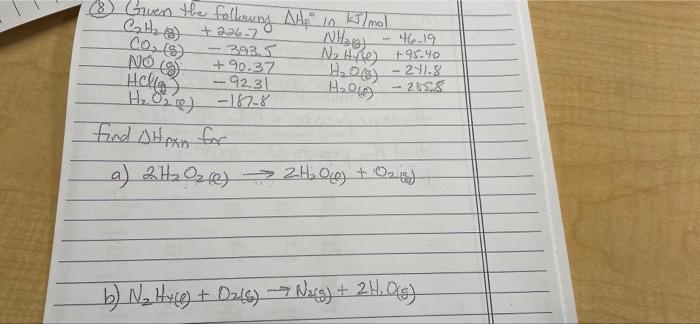 ⑧ Given the following ΔHf° in kJ/mol
C2H2(g) +226.7 NH3(g) - 46.19
CO2(g) - 393.5 N2H4(l) +95.40
NO(g) +90.37 H2O(g) - 241.8
HCl(g) - 92.31 H2O(l) - 285.8
H2O2(l) -187.8
find ΔHrxn for
a) 2H2O2(l) → 2H2O(l) + O2(g)
b) N2H4(l) + O2(g) → N2(g) + 2H2O(g)